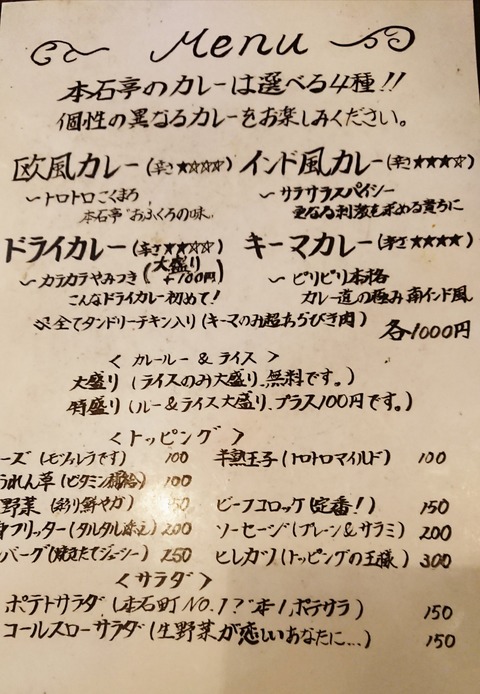 Menu
本石亭のカレーは選べる4種!!
個性の異なるカレーをお楽しみください。
欧風カレー(辛さ★☆☆☆) インド風カレー(辛さ★★★☆)
~トロトロこくまろ ~サラサラスパイシー
本石亭"おふくろの味„ 更なる刺激を求める貴方に
ドライカレー(辛さ★★☆☆) キーマカレー(辛さ★★★★)
~カラカラやみつき(大盛り+100円) ~ビリビリ本格
こんなドライカレー初めて! カレー道の極み南インド風
※全てタンドリーチキン入り(キーマのみ超あらびき肉)
各1000円
<カレールー & ライス>
大盛り(ライスのみ大盛り、無料です。)
特盛り(ルー&ライス大盛り、プラス100円です。)
<トッピング>
ーズ(モツァレラです) 100 半熟玉子(トロトロマイルド) 100
うれん草(ビタミン補給) 100
野菜(彩り鮮やか) 50 ビーフコロッケ(定番!) 150
フリッター(タルタル添え) 200 ソーセージ(プレーン&サラミ) 200
バーグ(焼きたてジューシー) 250 ヒレカツ(トッピングの王様) 300
<サラダ>
ポテトサラダ(本石町NO.1?ポテサラ) 150
コールスローサラダ(生野菜が恋しいあなたに…) 150